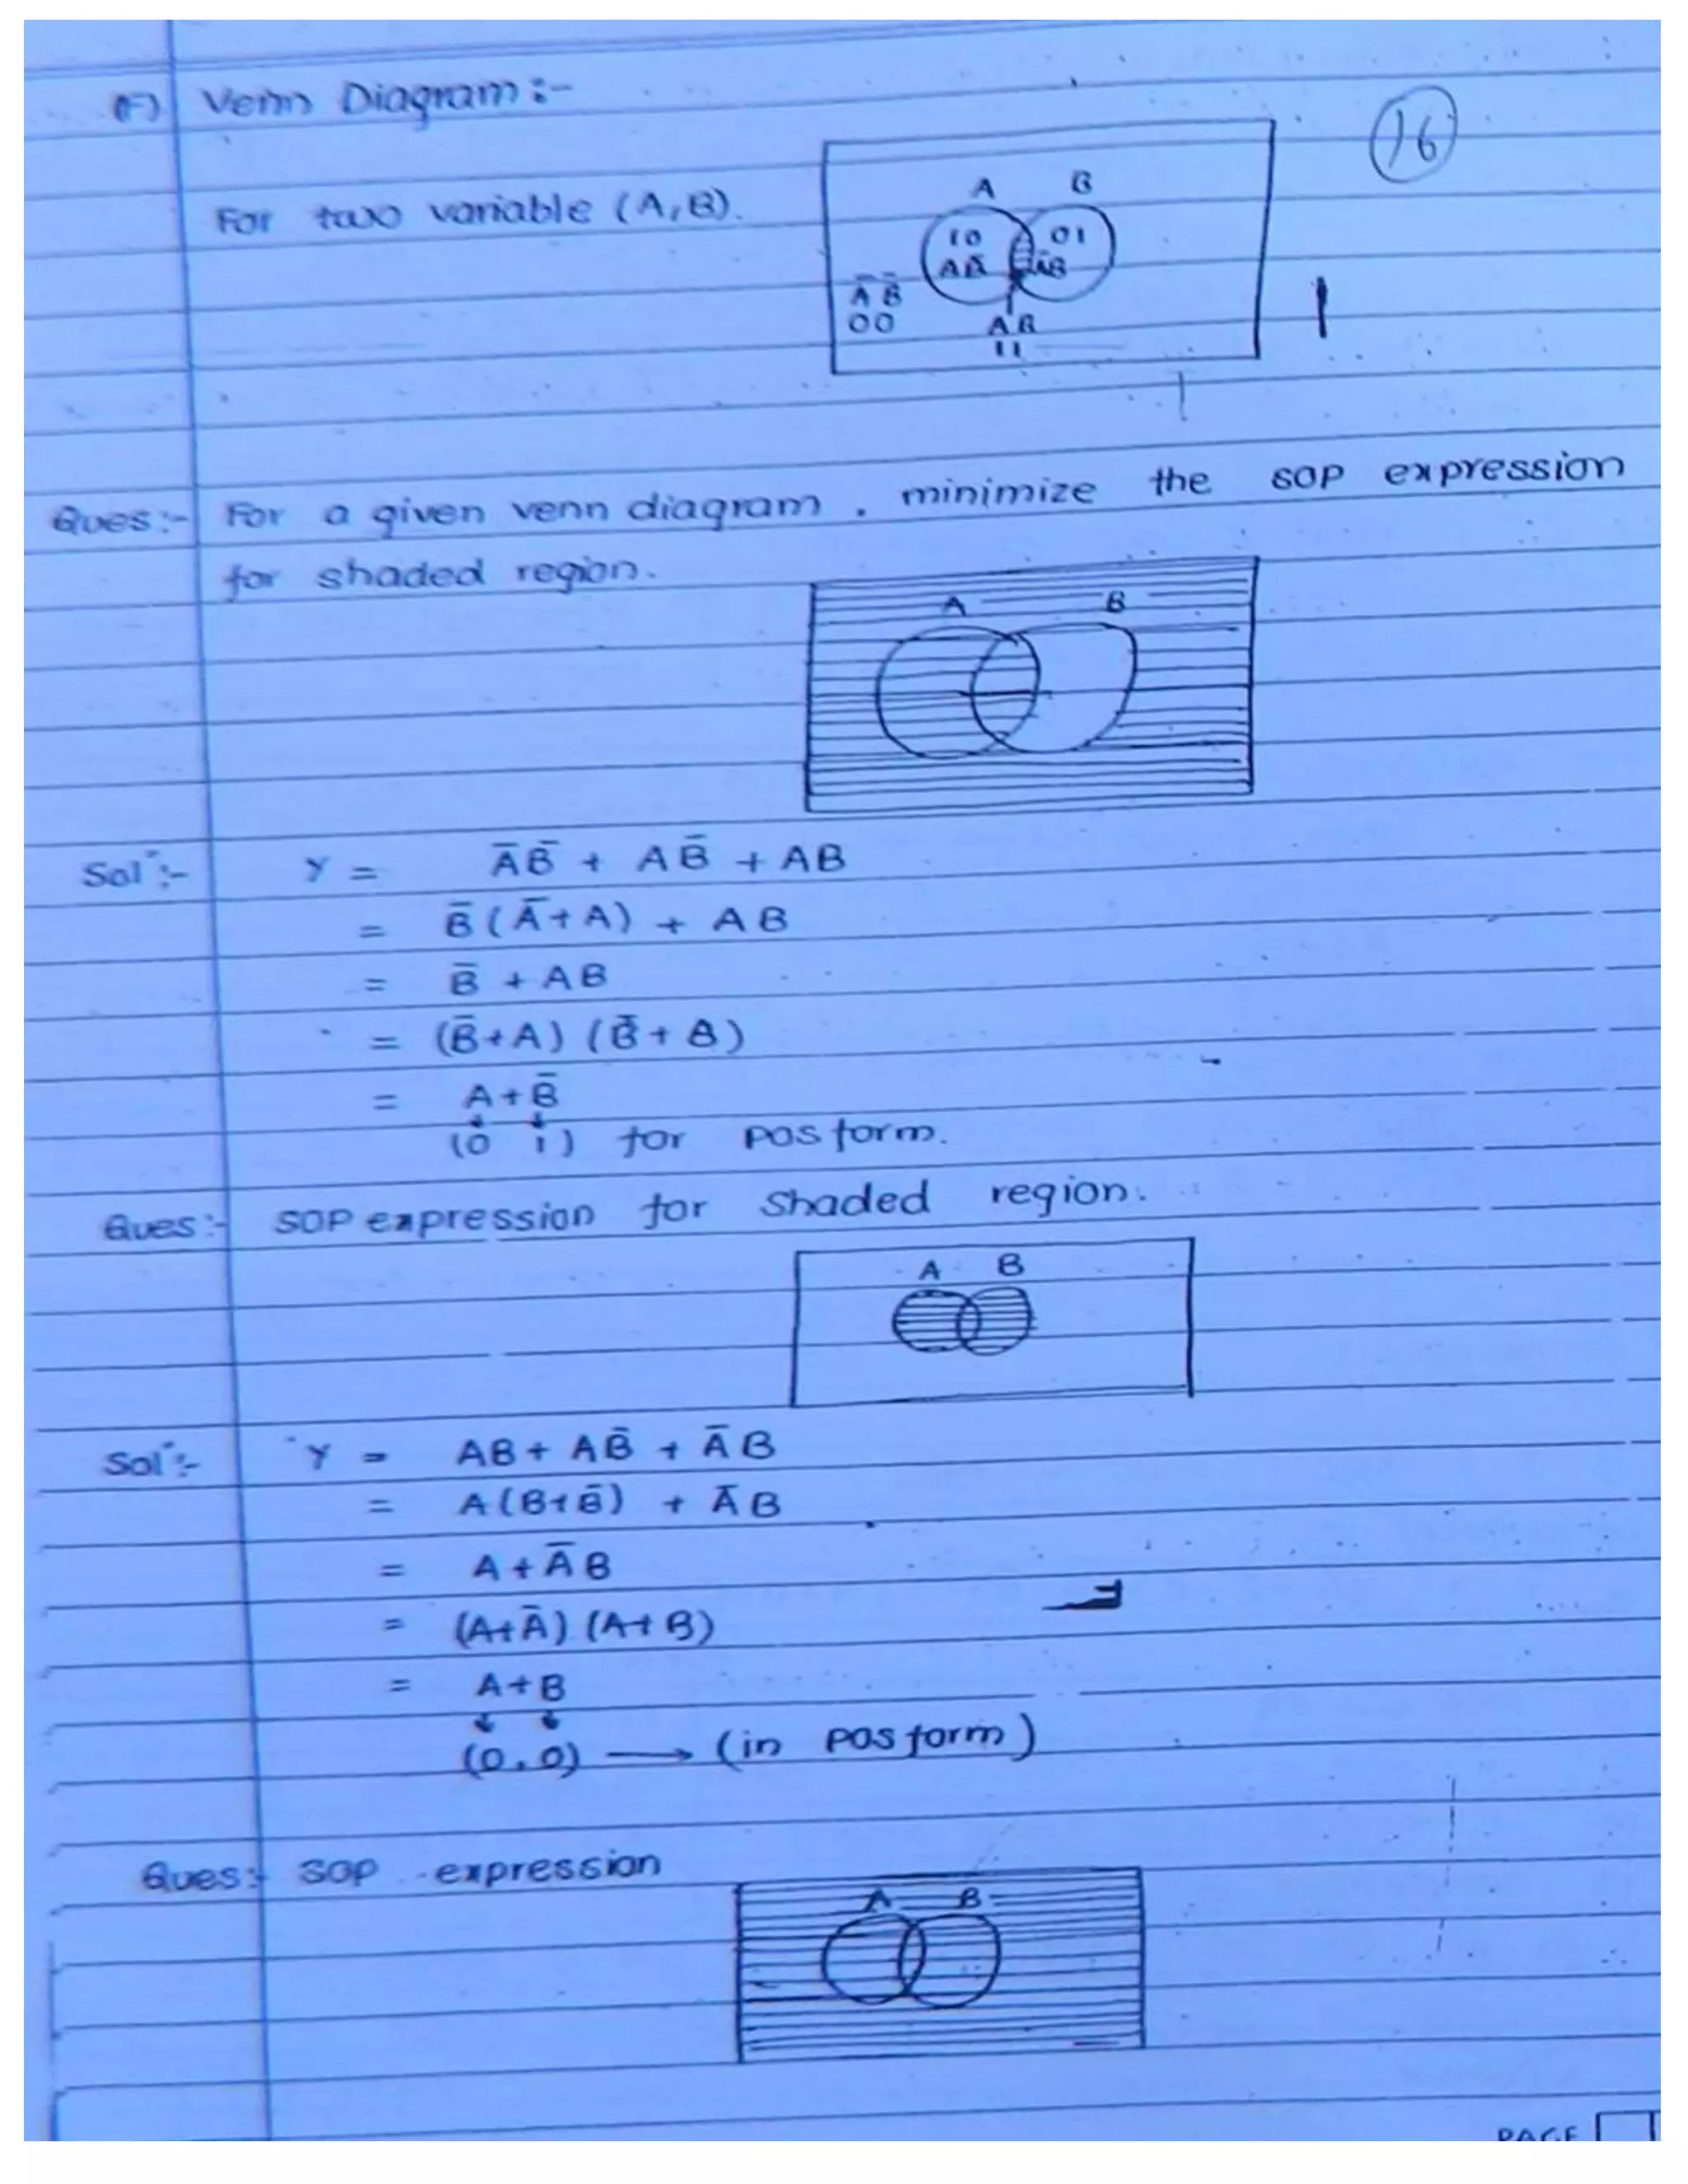 (F) Venn Diagram :-
(16)
For two variable (A,B).
A B
10 01
AB̅ A̅B
A̅ B̅
00
AB
11
Ques:- For a given venn diagram, minimize the SOP expression
for shaded region.
A B
Solⁿ:- Y = A̅B̅ + AB̅ + AB
= B̅(A̅+A) + AB
= B̅ + AB
= (B̅+A) (B̅+B)
= A+B̅
(0 1) for POS form.
Ques:- SOP expression for shaded region.
A B
Solⁿ:- Y = AB + AB̅ + A̅B
= A(B+B̅) + A̅B
= A + A̅B
= (A+A̅) (A+B)
= A+B
(0,0) → (in POS form)
Ques:- SOP expression
A B
PAGE